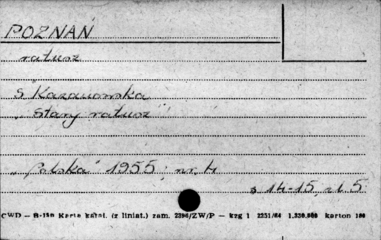 POZNAŃ
ratusz
S. Kazanowska
"Stary ratusz"
"Polska" 1955, nr. 4
s 14-15, il. 5
CWD – B-159 Karta katal. (z liniat.) zam. 2396/ZW/P – kzg 1 2231/64 1.330.000 karton 180